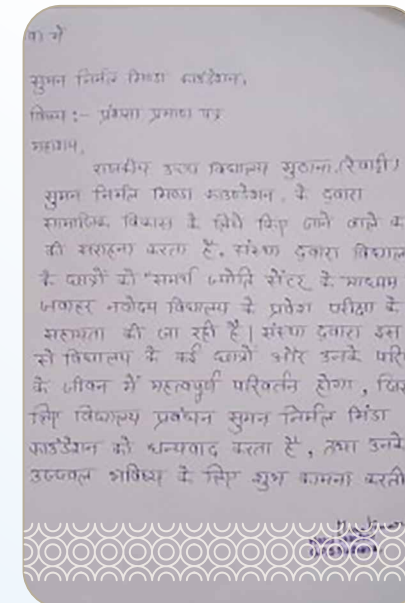 में
सुमन निर्मल मिण्डा फाउंडेशन,
विषय :- प्रंशसा प्रमाण पत्र
महाशय,
राजकीय उच्च विद्यालय सुठाना, (रेवाड़ी)
सुमन निर्मल मिण्डा फाउण्डेशन, के द्वारा
सामाजिक विकास के लिये किए जाने वाले
की सराहना करता है, संस्था द्वारा विद्याल
के छात्रों को "समर्थ ज्योति सेंटर के माध्यम
जवाहर नवोदय विद्यालय के प्रवेश परीक्षा के
सहायता की जा रही है। संस्था द्वारा इस
से विद्यालय के कई छात्रों और उनके परि
के जीवन में महत्वपूर्ण परिवर्तन होगा,
लिए विद्यालय प्रबंधन सुमन निर्मल मिंडा
फाउंडेशन को धन्यवाद करता है, तथा उनके
उज्जवल भविष्य के लिए शुभ कामना करती